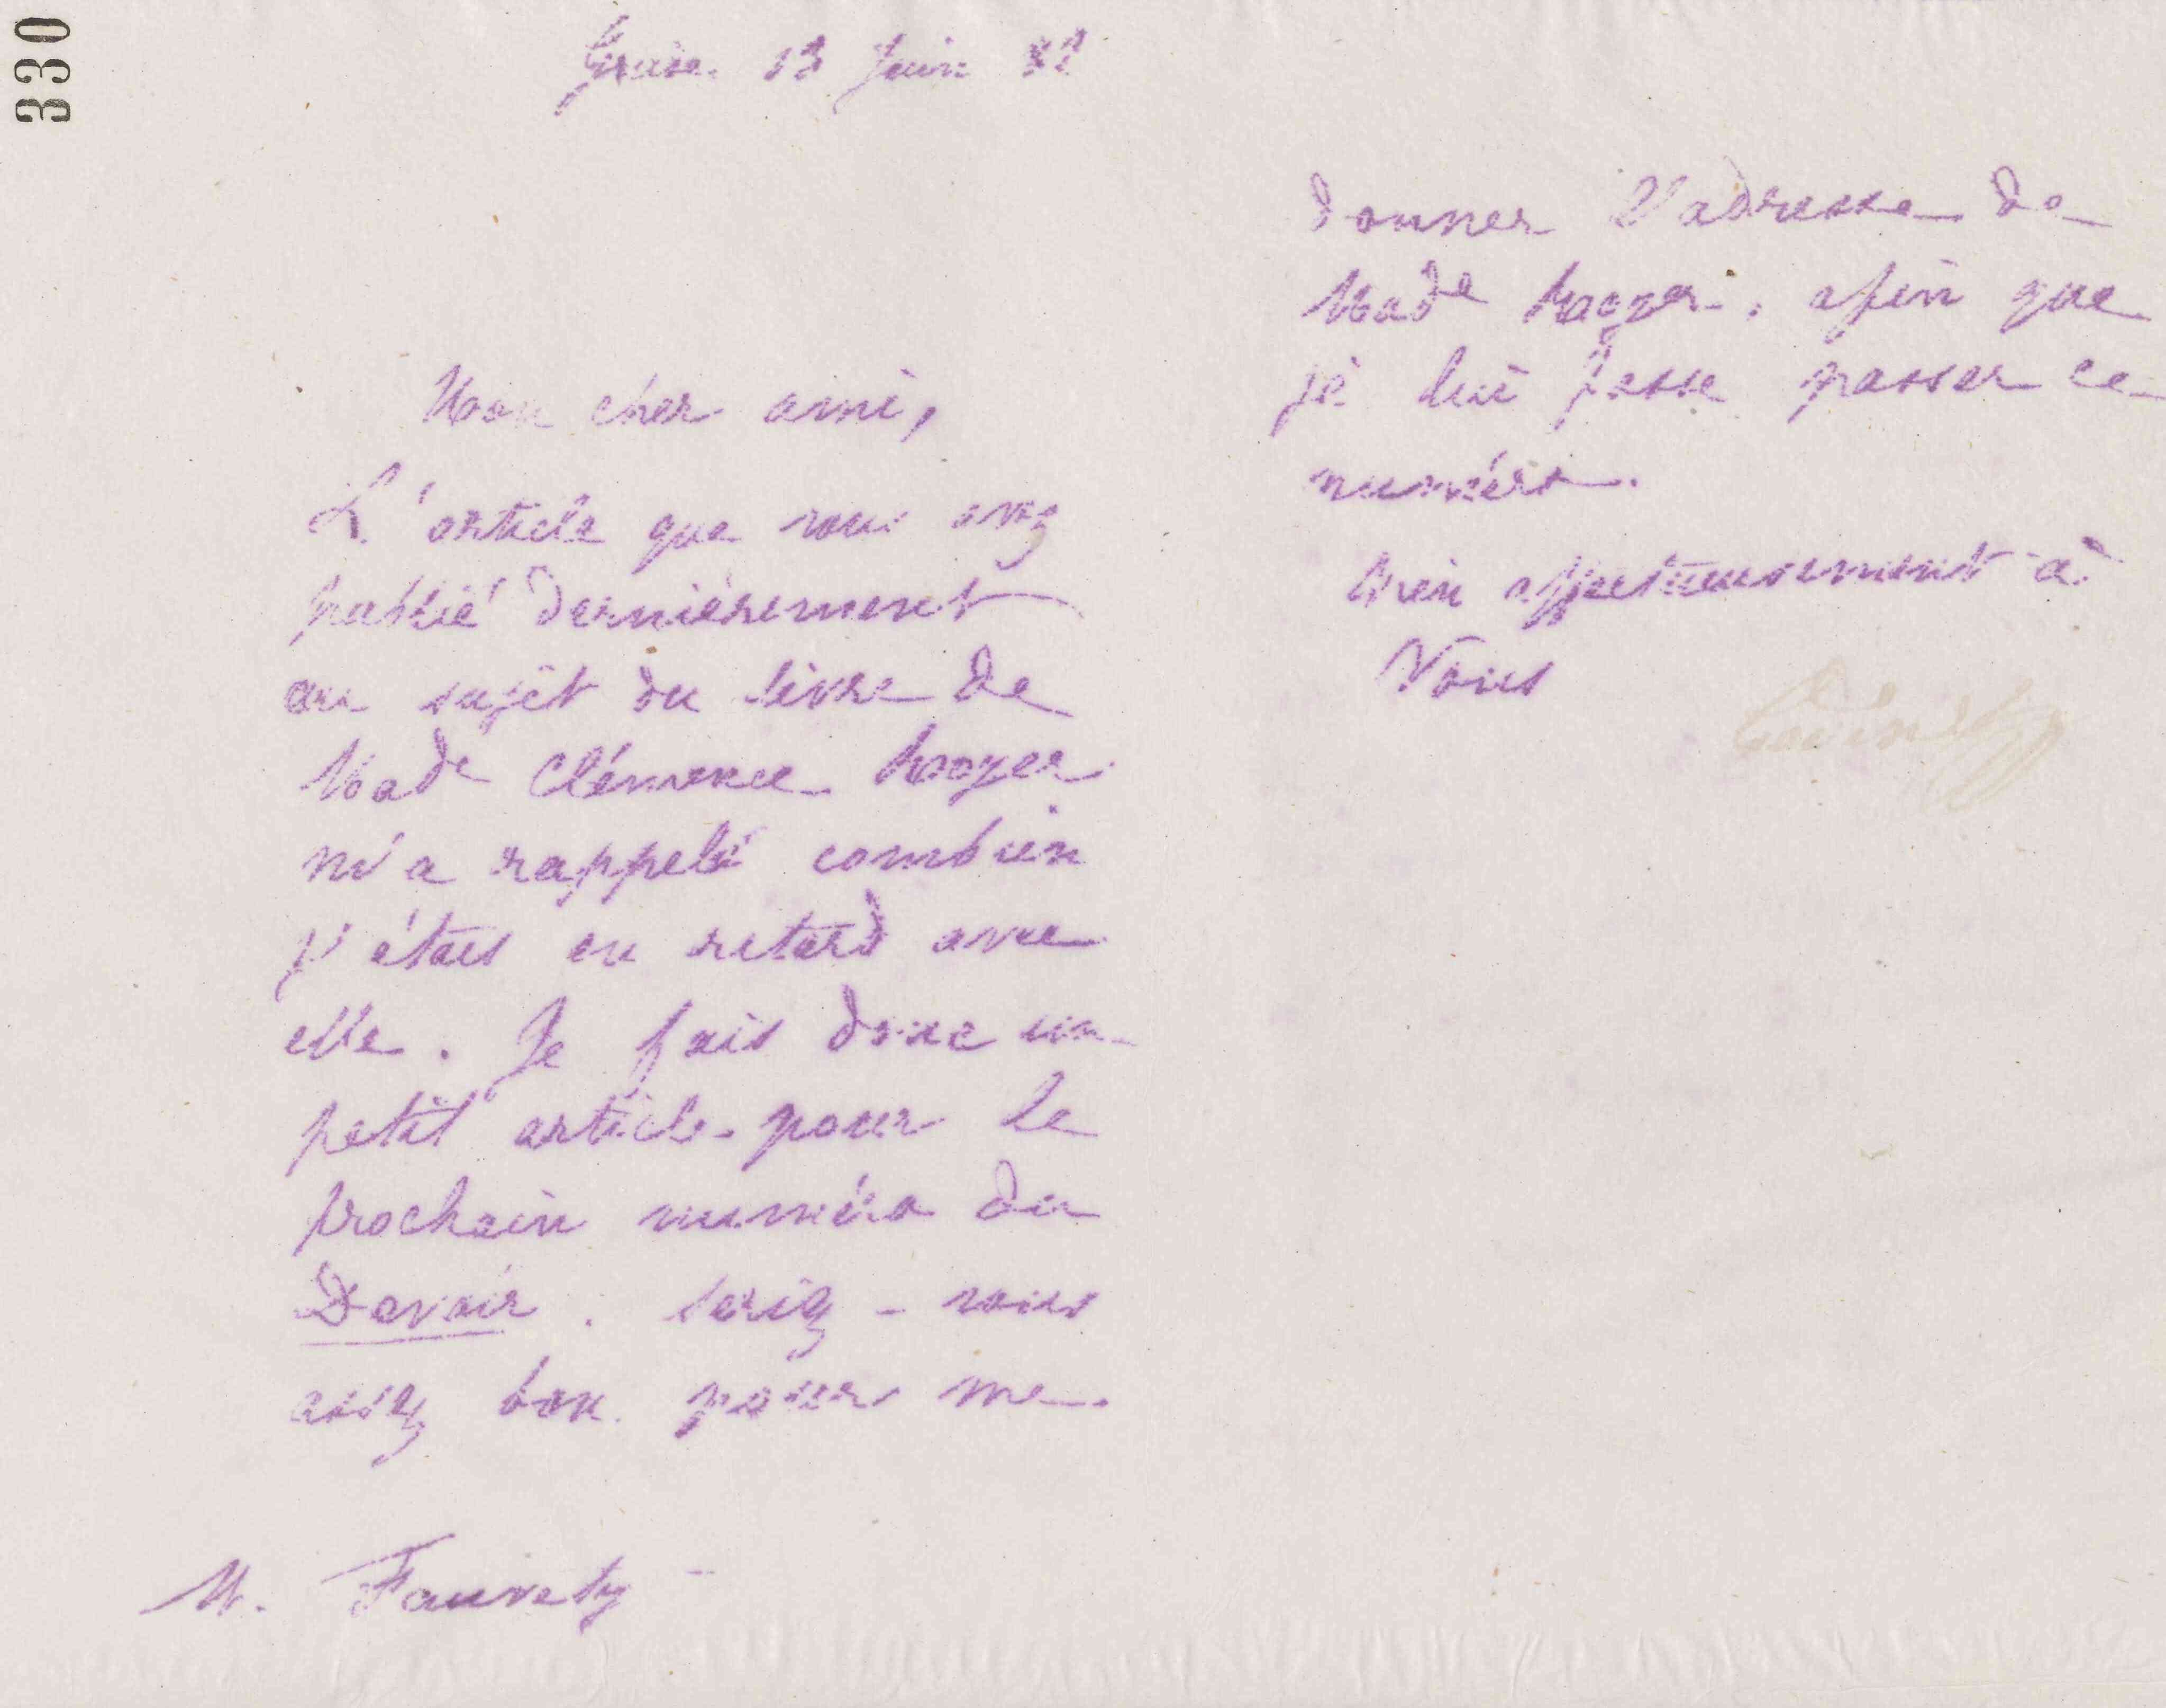 330
Guise 13 Juin 82
Mon cher ami,
L'article que vous avez
publié dernièrement
au sujet du livre de
Made Clémence Royer
m'a rappelé combien
j'étais en retard avec
elle. Je fais donc un
petit article pour le
prochain numéro du
Devoir. seriez-vous
assez bon pour me
M. Fauvety
donner l'adresse de
Made Royer, afin que
je lui fasse passer ce
numéro.
Bien affectueusement à
Vous
Godin